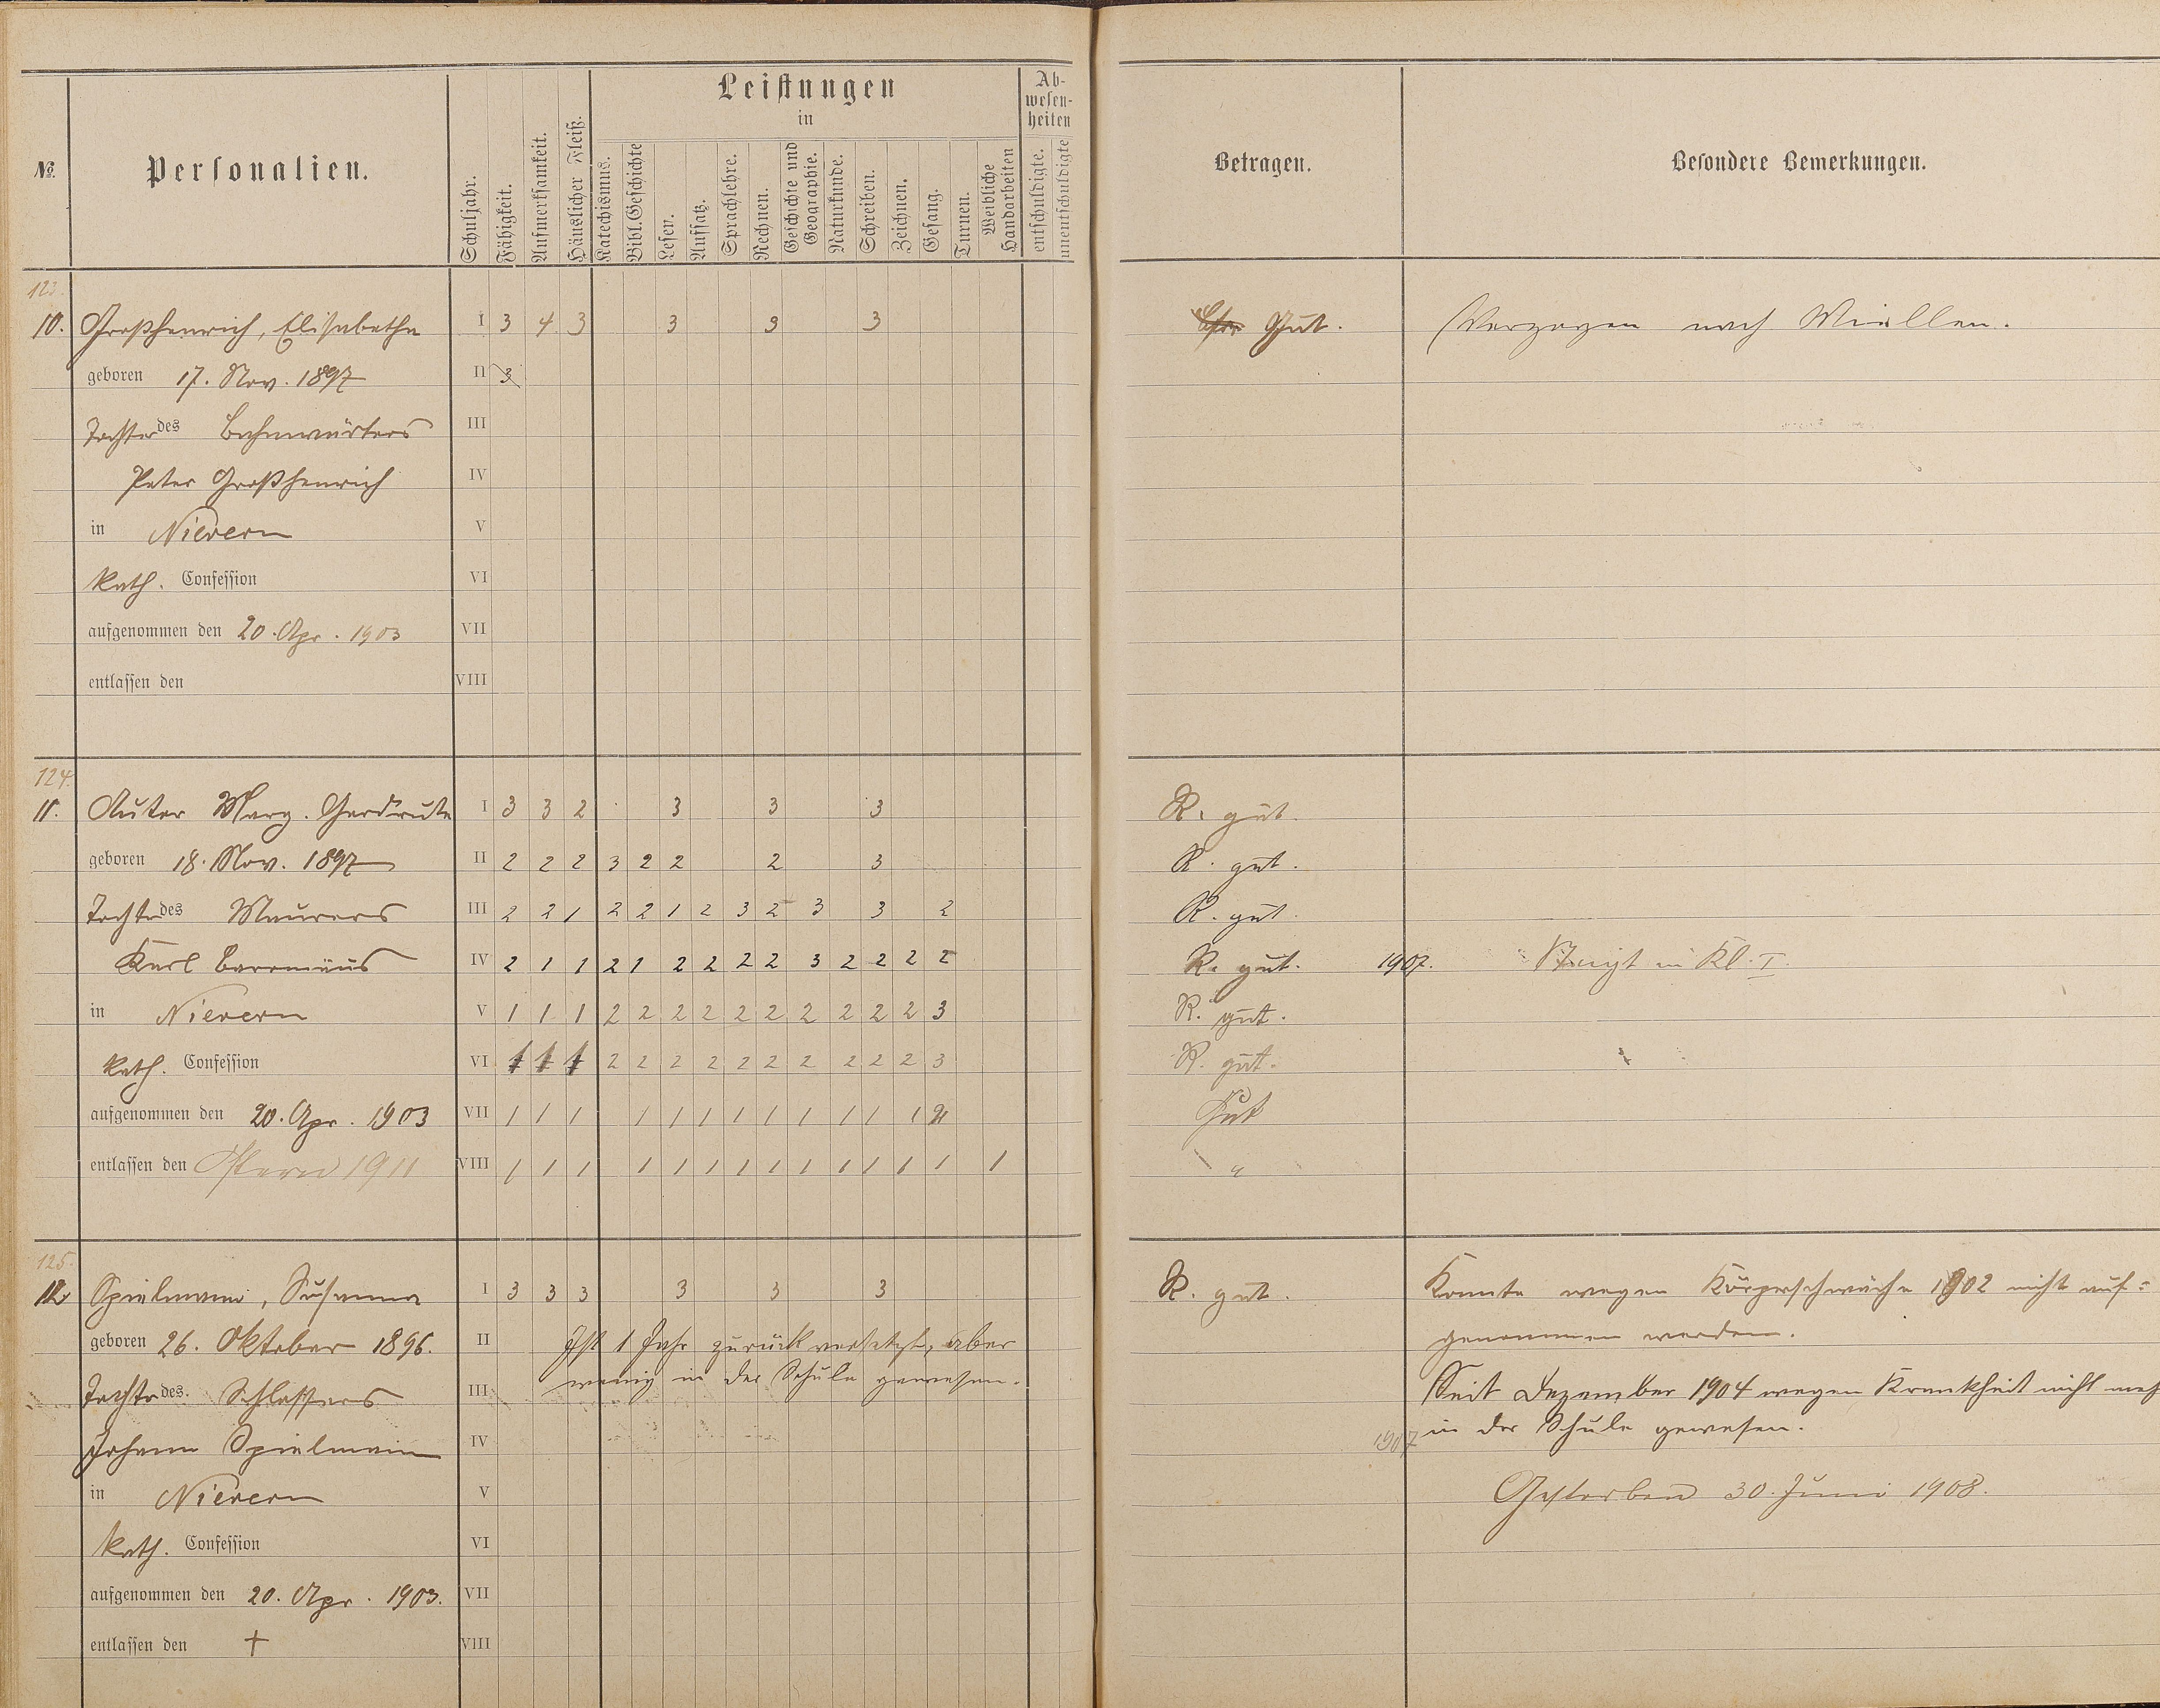 Leistungen
in
Ab-
wesen-
heiten
№
Personalien.
Schuljahr.
Fähigkeit.
Aufmerksamkeit.
Häuslicher Fleiß.
Katechismus.
Bibl. Geschichte
Lesen.
Aufsatz.
Sprachlehre.
Rechnen.
Geschichte und
Geographie.
Naturkunde.
Schreiben.
Zeichnen.
Gesang.
Turnen.
Weibliche
Handarbeiten
entschuldigte.
unentschuldigte
Betragen.
Besondere Bemerkungen.
123.
10. Großhenrich, Elisabetha I 3 4 3 3 3 3 Gut. Verzogen nach Miellen.
geboren 17. Nov. 1897 II 3
Tochter des Bahnwärters III
Peter Großhenrich IV
in Nievern V
Kath. Confession VI
aufgenommen den 20. Apr. 1903 VII
entlassen den VIII
124.
11. Auter Marg. Gerdrute I 3 3 2 3 3 3 R. gut.
geboren 18. Nov. 1897 II 2 2 2 3 2 2 2 3 R. gut.
Tochter des Maurers III 2 2 1 2 2 1 2 3 2 3 3 2 R. gut.
Karl Borromäus IV 2 1 1 2 1 2 2 2 2 3 2 2 2 2 R. gut. 1907. Steigt in Kl. I.
in Nievern V 1 1 1 2 2 2 2 2 2 2 2 2 2 3 R. gut.
Kath. Confession VI 1 1 1 2 2 2 2 2 2 2 2 2 2 3 R. gut.
aufgenommen den 20. Apr. 1903 VII 1 1 1 1 1 1 1 1 1 1 1 1 2 Gut
entlassen den Ostern 1911 VIII 1 1 1 1 1 1 1 1 1 1 1 1 1 1 "
125.
12. Spielmann, Susanna I 3 3 3 3 3 3 R. gut. Konnte wegen Körperschwäche 1902 nicht auf-
genommen werden.
geboren 26. Oktober 1896. II Ist 1 Jahr zurückversetzt, aber
wenig in der Schule gewesen.
Tochter des Schlossers III Seit Dezember 1904 wegen Krankheit nicht meh
Johann Spielmann IV 1907 in der Schule gewesen.
in Nievern V Gestorben 30. Juni 1908.
Kath. Confession VI
aufgenommen den 20. Apr. 1903. VII
entlassen den † VIII